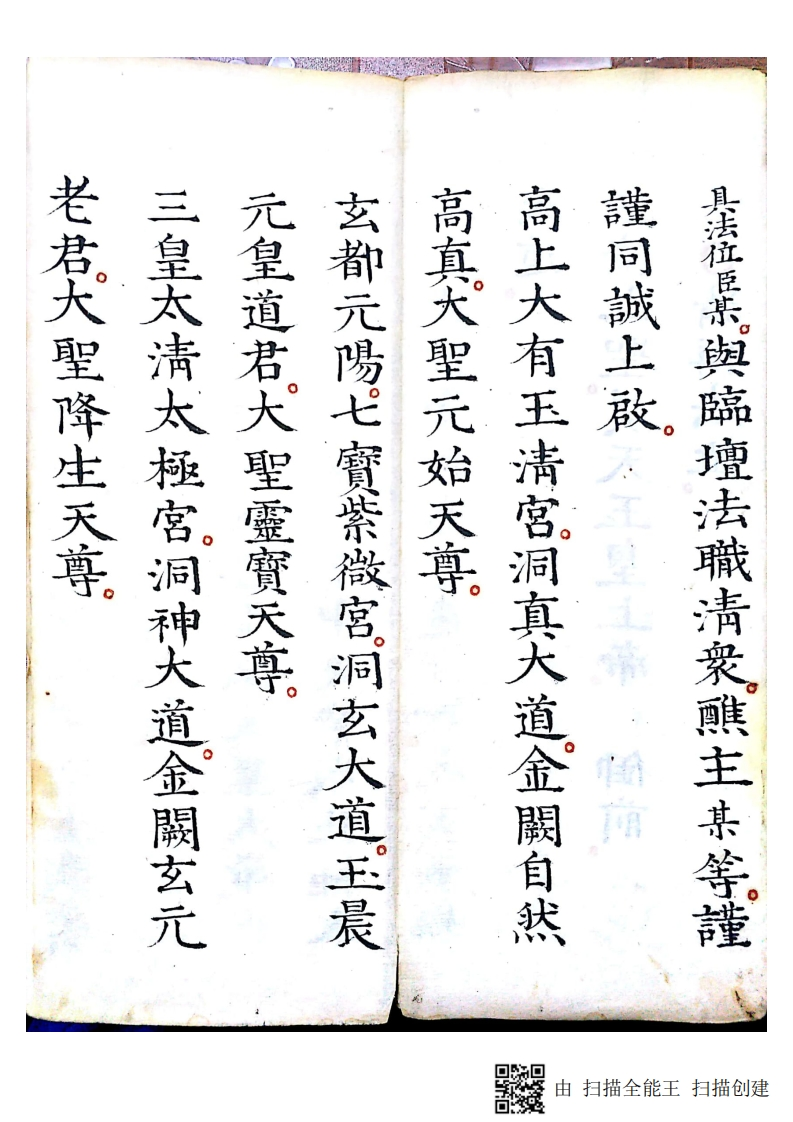 具法位臣某。與臨壇法職清衆。醮主某等。謹
謹同誠上啟。
高上大有玉清宮。洞真大道。金闕自然
高真。大聖元始天尊。
玄都元陽。七寶紫微宮。洞玄大道。玉晨
元皇道君。大聖靈寶天尊。
三皇太清太極宮。洞神大道。金闕玄元
老君。大聖降生天尊。
由 扫描全能王 扫描创建